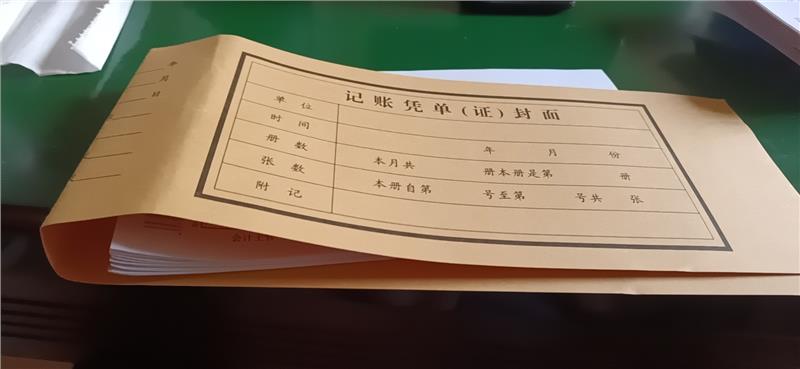 记账凭单(证)封面
单位
时间 年 月 份
册数 本月共 册本册是第 册
张数 本册自第 号至第 号共 张
附记
年月日
会计主